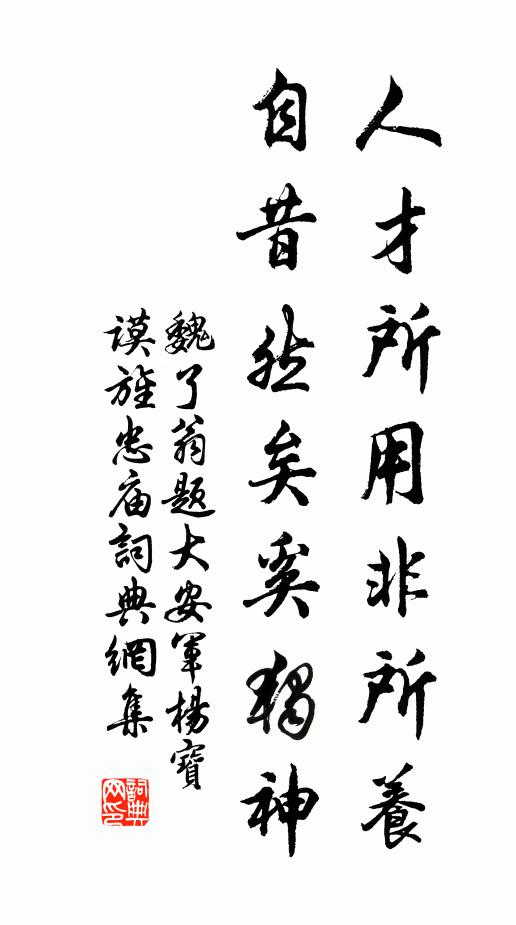 人才所用非所養
自昔然矣奚獨神
魏了翁題大安軍楊寶
謨旌忠庙詞典網集
詞典
网印